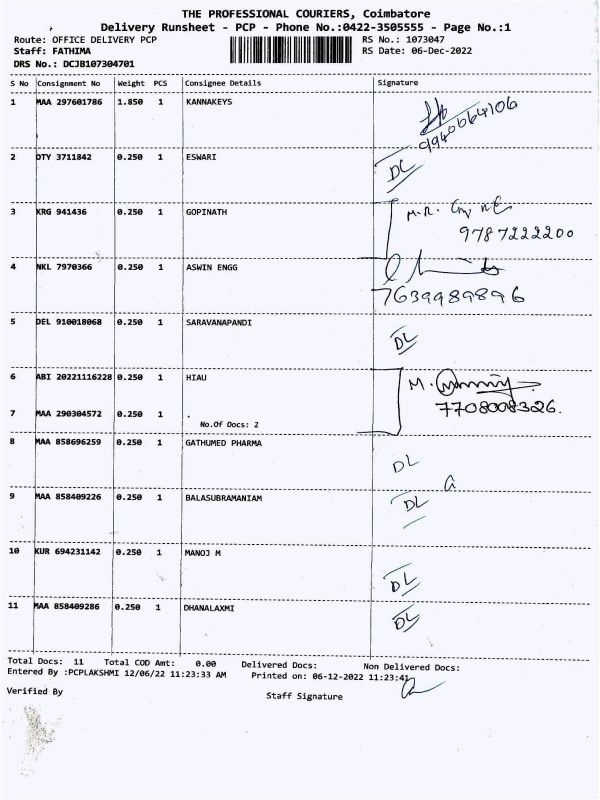 THE PROFESSIONAL COURIERS, Coimbatore
Delivery Runsheet - PCP - Phone No.:0422-3505555 - Page No.:1
Route: OFFICE DELIVERY PCP
RS No.: 1073047
Staff: FATHIMA
RS Date: 06-Dec-2022
DRS No.: DCJB107304701
S No Consignment No Weight PCS Consignee Details Signature
1 MAA 297601786 1.850 1 KANNAKEYS
9940664106
2 OTY 3711842 0.250 1 ESWARI
DL
3 KRG 941436 0.250 1 GOPINATH
9787222200
4 NKL 7970366 0.250 1 ASWIN ENGG
7639989896
5 DEL 910018068 0.250 1 SARAVANAPANDI
DL
6 ABI 20221116228 0.250 1 HIAU
7708008326.
7 MAA 290304572 0.250 1 .
No.Of Docs: 2
8 MAA 858696259 0.250 1 GATHUMED PHARMA
DL
9 MAA 858409226 0.250 1 BALASUBRAMANIAM
DL
10 KUR 694231142 0.250 1 MANOJ M
DL
11 MAA 858409286 0.250 1 DHANALAXMI
DL
Total Docs: 11 Total COD Amt: 0.00 Delivered Docs: Non Delivered Docs:
Entered By :PCPLAKSHMI 12/06/22 11:23:33 AM Printed on: 06-12-2022 11:23:41
Verified By Staff Signature